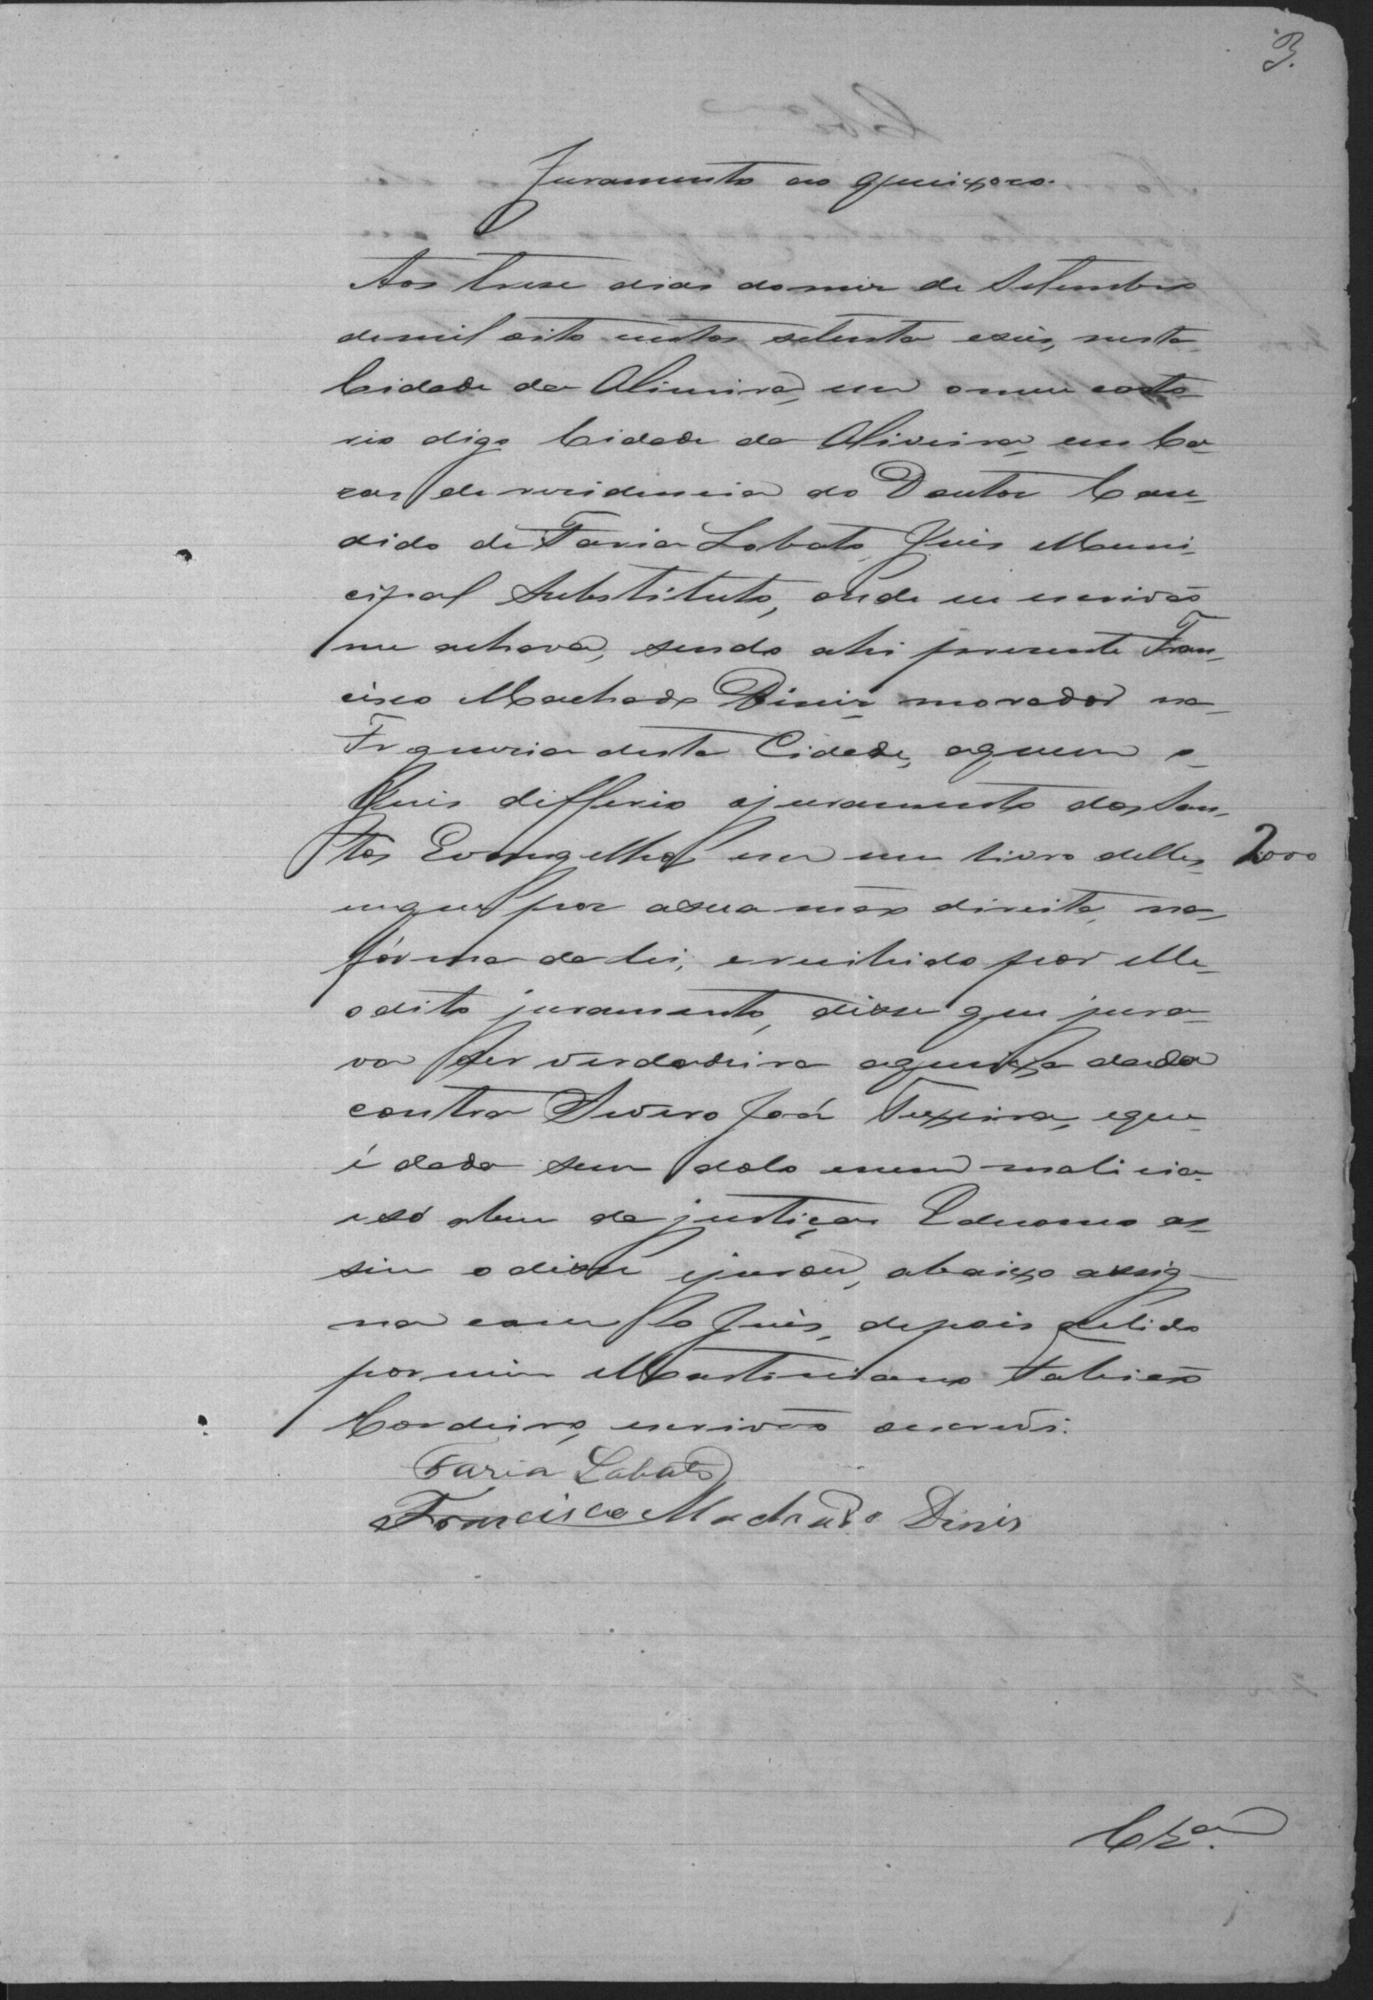 3.
Juramento ao queixoso.
Aos trese dias do mez de Setembro
de mil oito centos setenta e seis, nesta
Cidade da Oliveira, em o meu carto
rio digo Cidade da Oliveira, em Ca-
zas de residencia do Doutor Can-
dido de Faria Lobato, Juis Muni-
cipal Substituto, onde eu escrivão
me achava, sendo ahi presente Fran-
cisco Machado Diniz morador na
Freguesia desta Cidade, a quem o
Juis differio o juramento dos San-
tos Evangelhos em um livro delles 2000
em que por a sua mão direita, na
fórma da lei, e recebido por elle
o dito juramento, disse que jura-
va ser verdadeira a queixa dada
contra Severo José Teixeira, e que
é dada sem dolo e nem malicia
e só a bem da justiça. E de como as-
sim o disse e jurou, abaixo assig-
na com o Juis, depois de lido
por mim Martiniano Fabião
Cordeiro, escrivão escrevi.
Faria Lobato
Francisco Machado Dinis